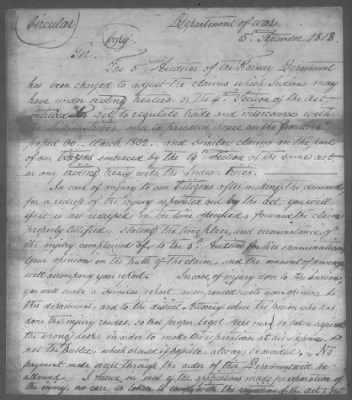 Circular
(copy)
Department of War
5 September 1818
Sir
The 5th Auditor of the Treasury Department
has been charged to adjust the claims which Indians may
have under existing treaties or the 4th Section of the Act
entitled An act to regulate trade and intercourse with
the Indian tribes, and to preserve peace on the frontiers
passed 30. March 1802. and similar claims on the part
of our Citizens embraced by the 14th Section of the same act
or any existing treaty with the Indian tribes.
In case of injury to our Citizens after making the demand
for a redress of the injury as pointed out by the Act, you will
if it is not redressed in the time specified, forward the claim
properly certified, stating the time, place, and circumstances of
the injury complained of, to the 5th Auditor for his examination
Your opinion on the truth of the claim, and the amount of damage
will accompany your report. In case of injury done to the Indians
you will make a similar report, accompanied with your opinion to
this department, and to the district Attorney where the person who has
done the injury resides, so that proper legal steps may be taken against
the wrong doer in order to make the reparation at his expense, and
not the public, which ought if possible, always be avoided. No
payment made except through the order of this Department will be
allowed. I observe in most of the applications made for reparation of
the injury, no care is taken to comply with the requisitions of the act; but